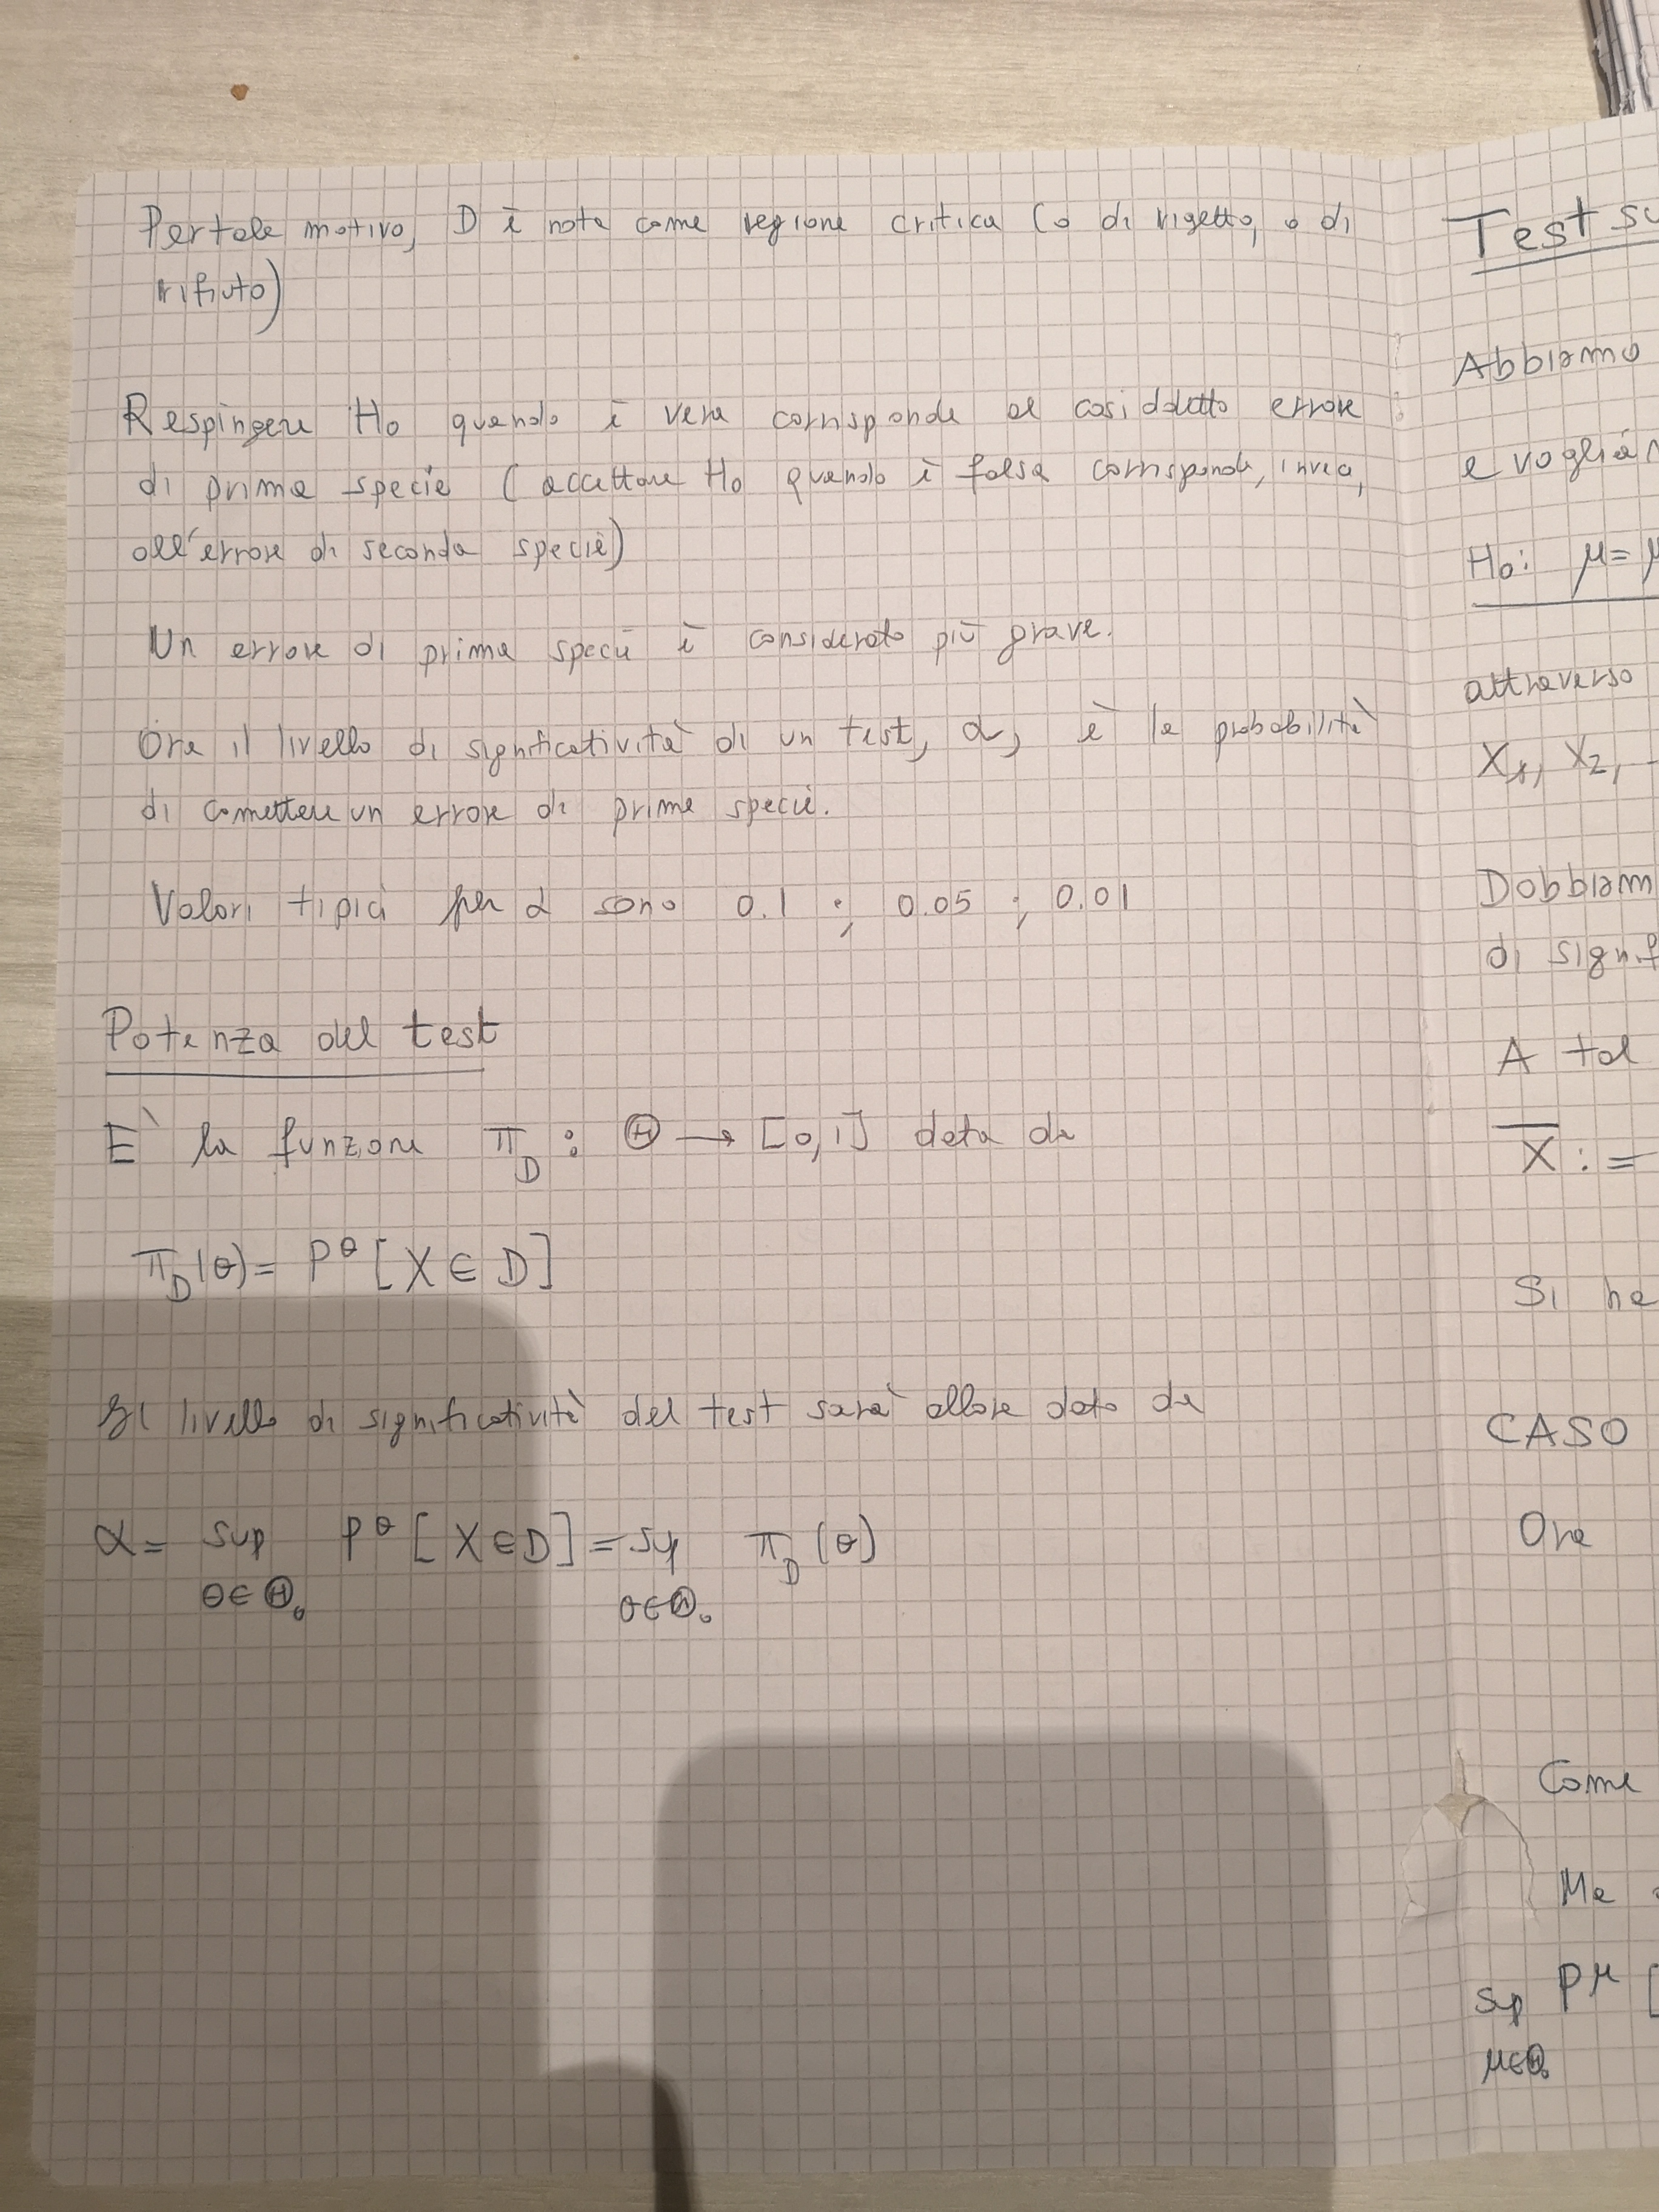 Per tale motivo, D è nota come regione critica (o di rigetto, o di
rifiuto)
Respingere H₀ quando è vera corrisponde al cosiddetto errore
di prima specie (accettare H₀ quando è falsa corrisponde, invece,
all'errore di seconda specie)
Un errore di prima specie è considerato più grave.
Ora il livello di significatività di un test, α, è la probabilità
di commettere un errore di prima specie.
Valori tipici per α sono 0.1 ; 0.05 ; 0.01
Potenza del test
E' la funzione π_D : Θ → [0,1] data da
π_D(θ) = P^θ [X ∈ D]
Il livello di significatività del test sarà allora dato da
α = sup P^θ [X ∈ D] = sup π_D(θ)
θ∈Θ₀ θ∈Θ₀
Test su
Abbiamo
e voglia
H₀: μ=
attraverso
X₁, X₂,
Dobbiam
di signif
A tal
X̅ :=
Si ha
CASO
Ora
Come
Ma
sup P^μ [
μ∈Θ₀